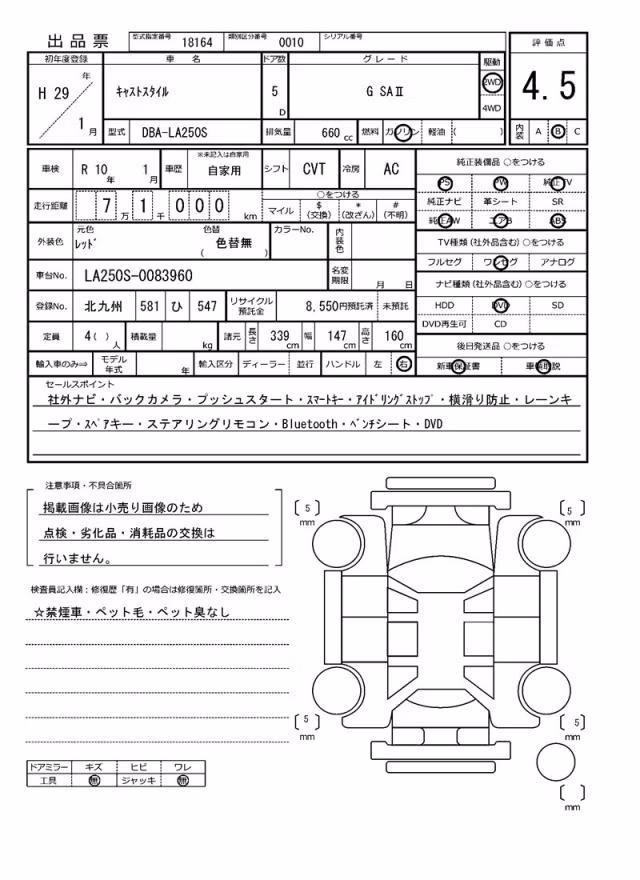 出品票
型式指定番号 18164 類別区分番号 0010 シリアル番号
評価点
4.5
内装 A B C
初年度登録 車名 ドア数 グレード 駆動
H 29 年 1 月 キャストスタイル 5 D G SAⅡ 2WD 4WD
型式 DBA-LA250S 排気量 660 cc 燃料 ガソリン 軽油 ( )
車検 R 10 年 1 月 車歴 ※未記入は自家用 自家用 シフト CVT 冷房 AC
走行距離 7 万 1 千 0 0 0 km
○をつける
マイル $ (交換) * (改ざん) # (不明)
外装色 元色 レッド 色替 ( 色替無 ) カラーNo. 内装色
車台No. LA250S-0083960 名変期限 月 日
登録No. 北九州 581 ひ 547 リサイクル預託金 8,550円預託済 未預託
定員 4( ) 人 積載量 kg 諸元 長さ 339 cm 幅 147 cm 高さ 160 cm
輸入車のみ⇒ モデル年式 年 輸入区分 ディーラー 並行 ハンドル 左 右
純正装備品 ○をつける
PS PW 純正TV
純正ナビ 革シート SR
純正AW エアB ABS
TV種類 (社外品含む) ○をつける
フルセグ ワンセグ アナログ
ナビ種類 (社外品含む) ○をつける
HDD DVD SD
DVD再生可 CD
後日発送品 ○をつける
新車保証書 車輌取説
セールスポイント
社外ナビ・バックカメラ・プッシュスタート・スマートキー・アイドリングストップ・横滑り防止・レーンキ
ープ・スペアキー・ステアリングリモコン・Bluetooth・ベンチシート・DVD
注意事項・不具合箇所
掲載画像は小売り画像のため
点検・劣化品・消耗品の交換は
行いません。
検査員記入欄：修復歴「有」の場合は修復箇所・交換箇所を記入
☆禁煙車・ペット毛・ペット臭なし
ドアミラー キズ ヒビ ワレ
工具 無 ジャッキ 無
5 mm
5 mm
5 mm
5 mm
mm